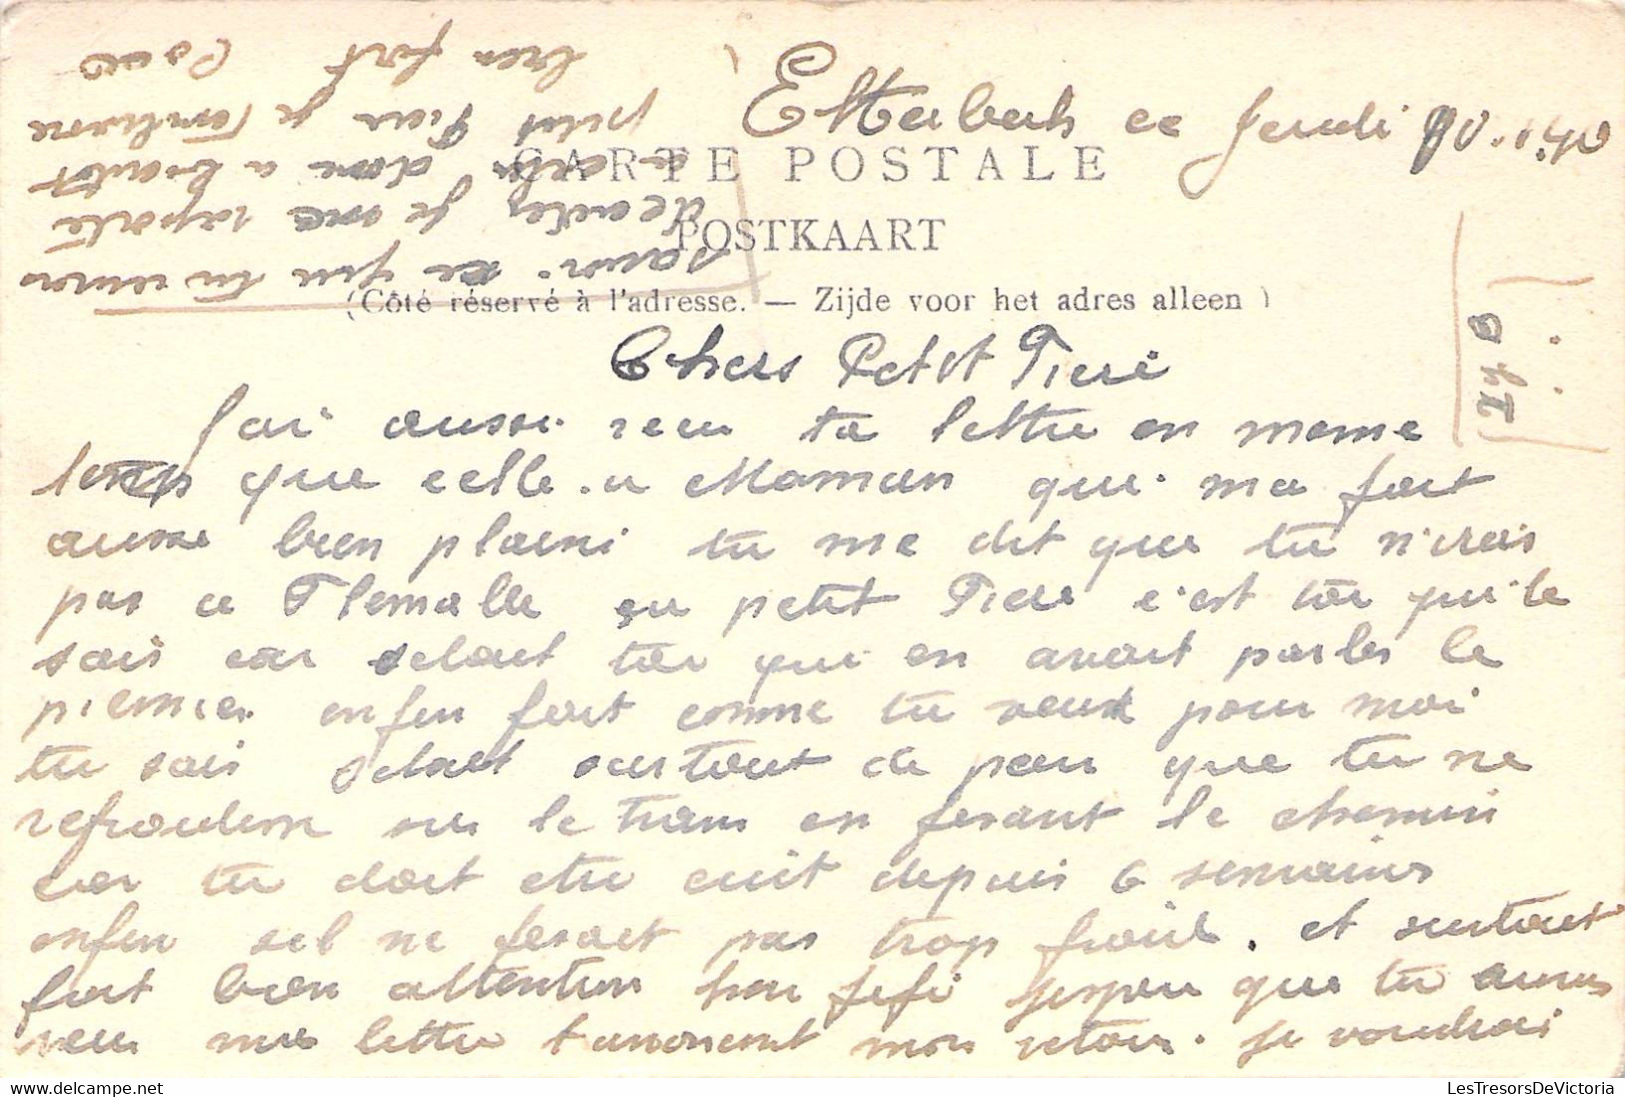 Etterbeek ce Jeudi
CARTE POSTALE
POSTKAART
(Côté réservé à l'adresse. — Zijde voor het adres alleen)
Chers Petit Piere
J'ai aussi recu ta lettre en meme
temps que celle a Maman qui ma fait
ausse bien plaisi tu me dit que tu n'irais
pas a Flemalle petit Piere c'est toi qui le
sais car setait toi qui en avait parler le
premier enfin fait comme tu veux pour moi
tu sais setait surtout de peur que tu ne
refroidisse sur le tram en fesant le chemin
car tu doit etre cuit depuis 6 semaines
enfin sil ne fesait pas trop froid. et surtout
fait bien attention hen fifi jespere que tu auras
recu mes lettre t'anoncent mon retour. je voudrai
savoir ce que tu
decides je me raporte
a donc a biantot
petit Piere je t'embrasse
bien fort
LesTresorsDeVictoria
www.delcampe.net